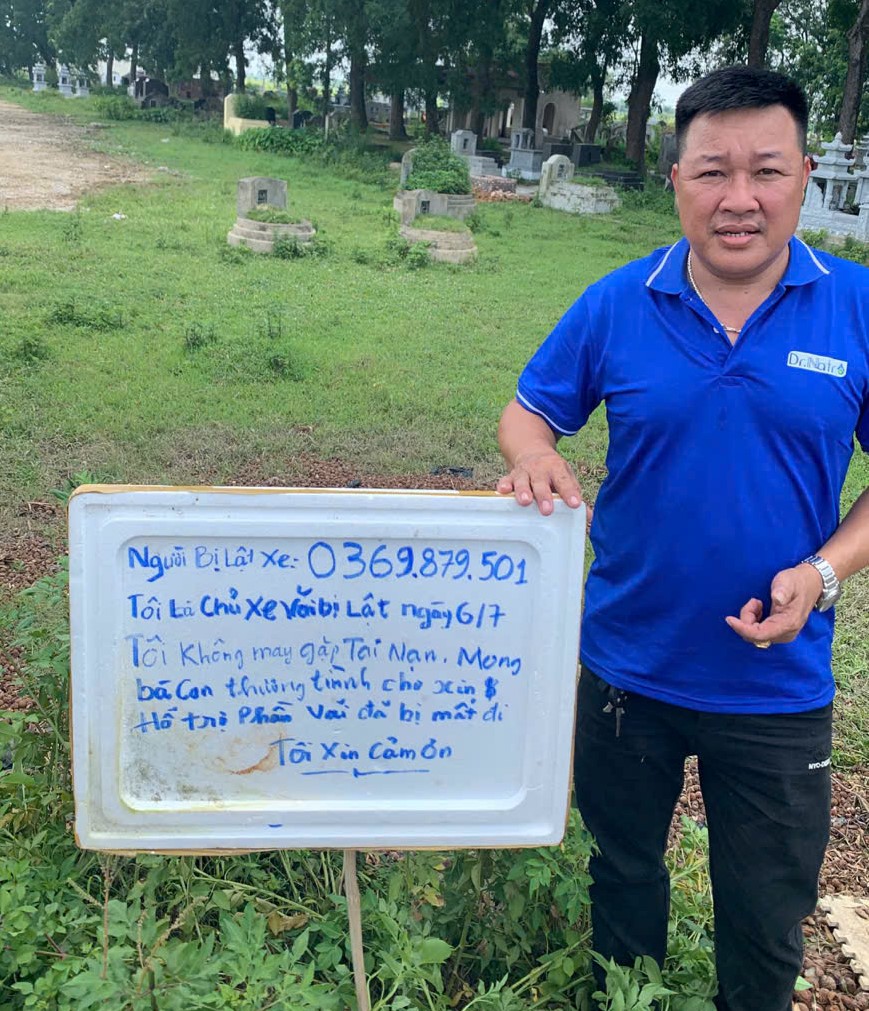 Dr.Natro
Người Bị Lật Xe: 0369.879.501
Tôi Là Chủ Xe Vải bị Lật ngày 6/7
Tôi Không may gặp Tai Nạn. Mong
bà Con thương tình cho xin $
Hỗ trợ Phần Vải đã bị mất đi
Tôi Xin Cảm ơn